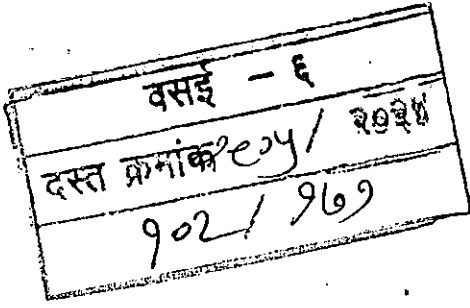 वसई - ६
दस्त क्रमांक / २०२४
१०२ / १७१